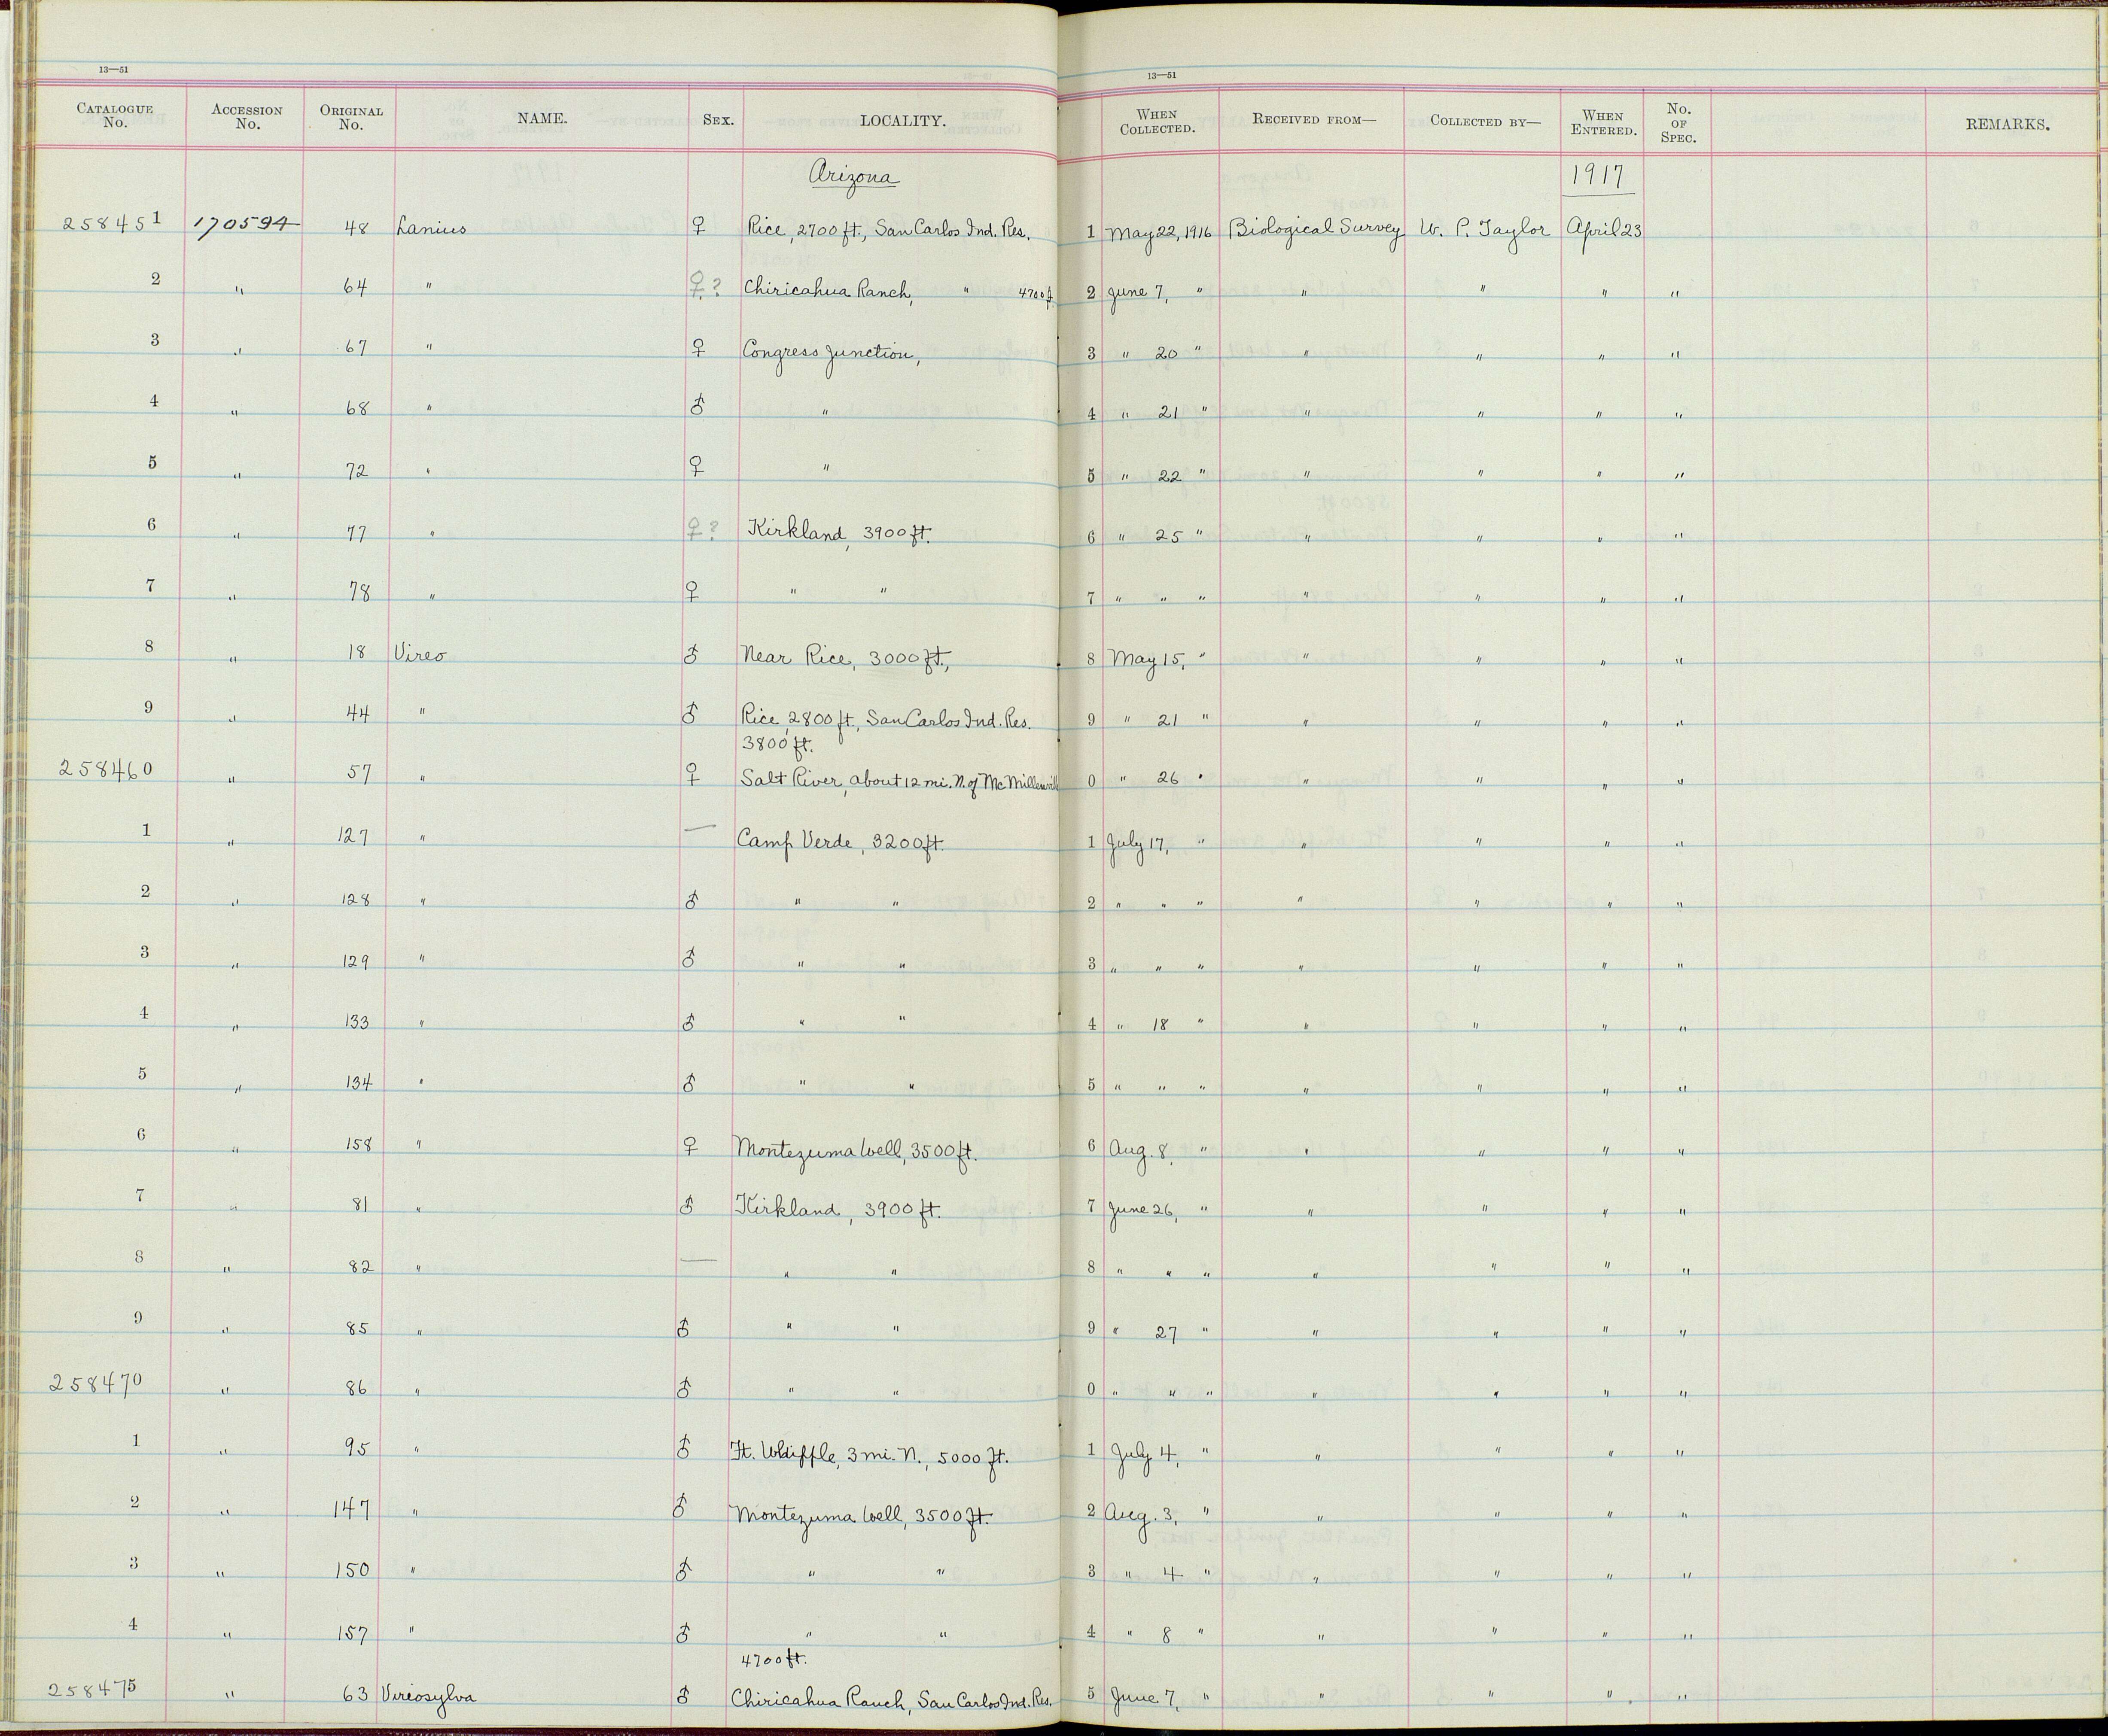 13—51
13—51
CATALOGUE No. ACCESSION No. ORIGINAL No. NAME. SEX. LOCALITY. WHEN COLLECTED. RECEIVED FROM— COLLECTED BY— WHEN ENTERED. No. OF SPEC. REMARKS.
Arizona 1917
258451 170594 48 Lanius ♀ Rice, 2700 ft., San Carlos Ind. Res. 1 May 22, 1916 Biological Survey W. P. Taylor April 23
2 " 64 " ♀? Chiricahua Ranch, " 4700 ft. 2 June 7, " " " " "
3 " 67 " ♀ Congress Junction, 3 " 20 " " " " "
4 " 68 " ♂ " 4 " 21 " " " " "
5 " 72 " ♀ " 5 " 22 " " " " "
6 " 77 " ♀? Kirkland, 3900 ft. 6 " 25 " " " " "
7 " 78 " ♀ " " 7 " " " " " " "
8 " 18 Vireo ♂ Near Rice, 3000 ft., 8 May 15, " " " " "
9 " 44 " ♂ Rice, 2800 ft., San Carlos Ind. Res. 9 " 21 " " " " "
3800 ft.
258460 " 57 " ♀ Salt River, about 12 mi. N. of McMillenville 0 " 26 " " " " "
1 " 127 " — Camp Verde, 3200 ft. 1 July 17, " " " " "
2 " 128 " ♂ " " 2 " " " " " " "
3 " 129 " ♂ " " 3 " " " " " " "
4 " 133 " ♂ " " 4 " 18 " " " " "
5 " 134 " ♂ " " 5 " " " " " " "
6 " 158 " ♀ Montezuma Well, 3500 ft. 6 Aug. 8, " " " " "
7 " 81 " ♂ Kirkland, 3900 ft. 7 June 26, " " " " "
8 " 82 " — " " 8 " " " " " " "
9 " 85 " ♂ " " 9 " 27 " " " " "
258470 " 86 " ♂ " " 0 " " " " " " "
1 " 95 " ♂ Ft. Whipple, 3 mi. N., 5000 ft. 1 July 4, " " " " "
2 " 147 " ♂ Montezuma Well, 3500 ft. 2 Aug. 3, " " " " "
3 " 150 " ♂ " " 3 " 4 " " " " "
4 " 157 " ♂ " " 4 " 8 " " " " "
4700 ft.
258475 " 63 Vireosylva ♂ Chiricahua Ranch, San Carlos Ind. Res. 5 June 7, " " " " "